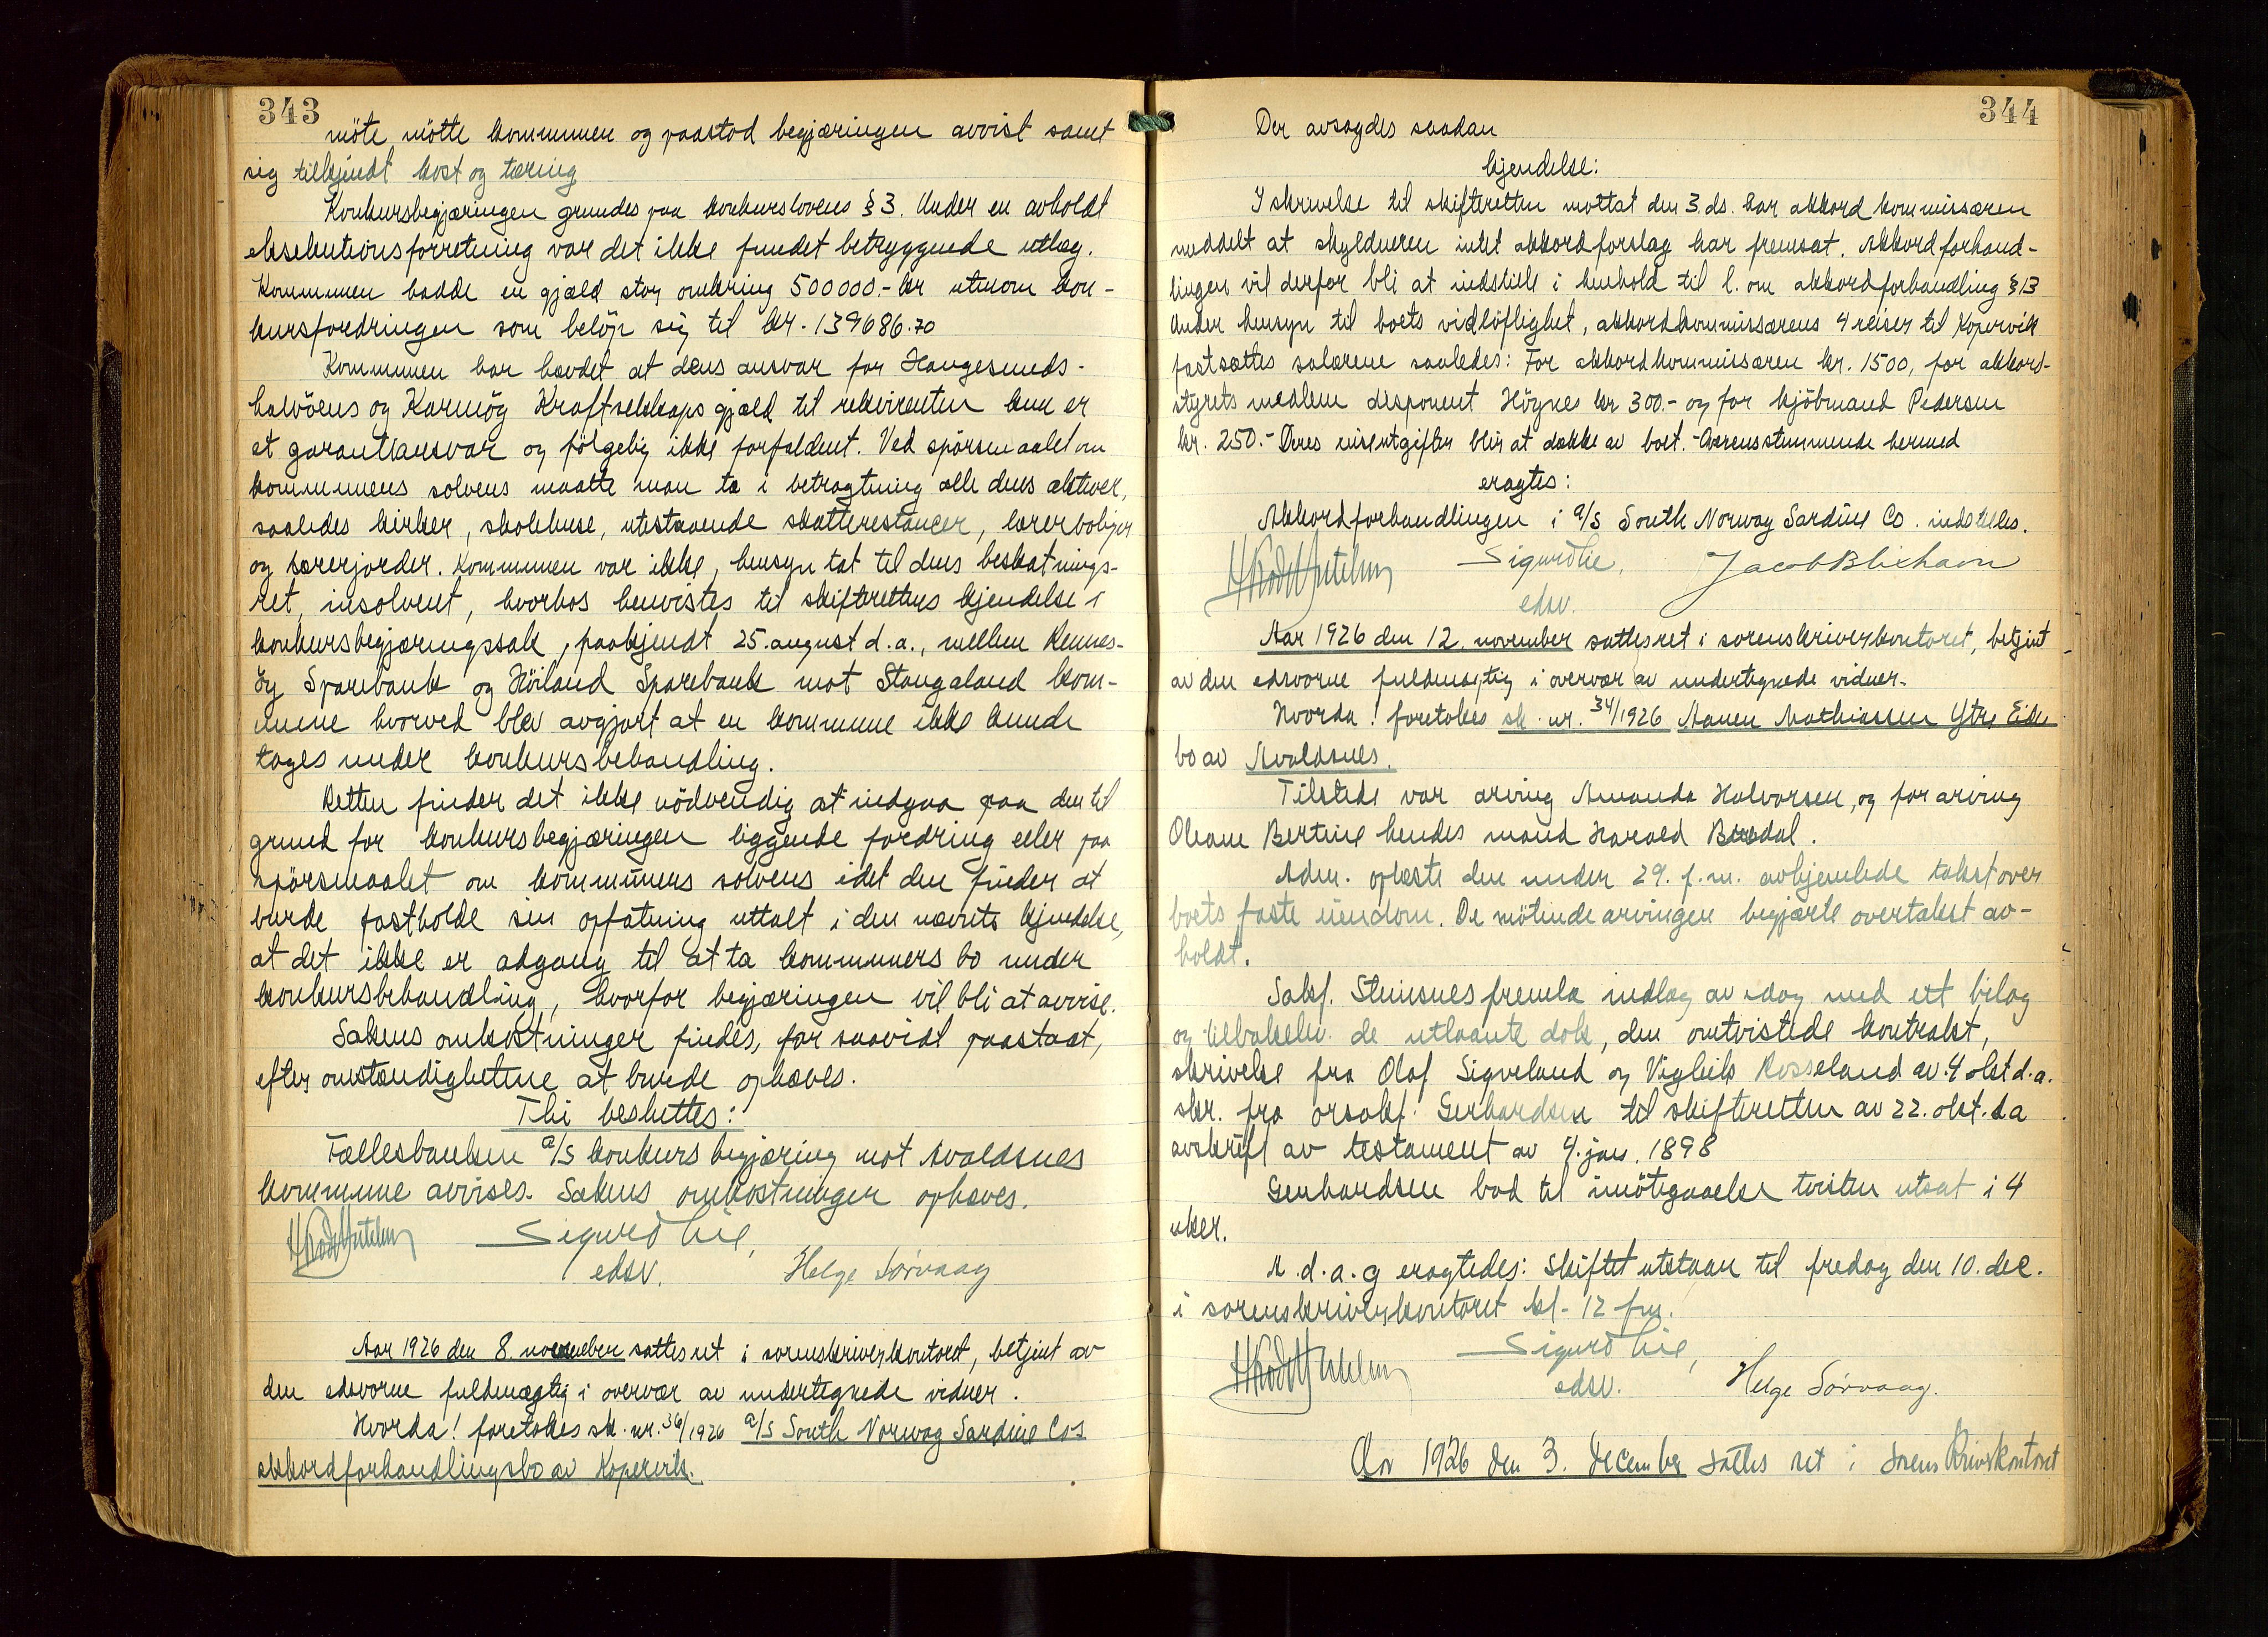 343
möte mötte kommunen og paastod begjæringen avvist samt
sig tilkjendt kost og tæring
Konkursbegjæringen grundes paa konkurslovens § 3. Under en avholdt
eksekutionsforretning var det ikke fundet betryggende utlæg.
Kommunen hadde en gjæld stor omkring 500000.- kr utenom kon-
kursfordringen som belöp sig til kr. 139686.70
Kommunen har hævdet at dens ansvar for Haugesunds-
halvöens og Karmöy Kraftselskaps gjæld til rekvirenten kun er
et garantiansvar og fölgelig ikke forfaldent. Ved spörsmaalet om
kommunens solvens maatte man ta i betragtning alle dens aktiver,
saaledes kirker, skolehuse, utestaaende skatterestancer, lærerboliger
og lærerjorder. Kommunen var ikke, hensyn tat til dens beskatnings-
ret, insolvent, hvorhos henvistes til skifterettens kjendelse i
konkursbegjæringssak, paakjendt 25. august d.a., mellem Rennes-
öy Sparebank og Höiland Sparebank mot Stangaland kom-
mune hvorved blev avgjort at en kommune ikke kunde
tages under konkursbehandling.
Retten finder det ikke nödvendig at indgaa paa den til
grund for konkursbegjæringen liggende fordring eller paa
spörsmaalet om kommunens solvens idet den finder at
burde fastholde sin opfatning uttalt i den nævnte kjendelse,
at det ikke er adgang til at ta kommuners bo under
konkursbehandling, hvorfor begjæringen vil bli at avvise.
Sakens omkostninger findes, for saavidt paastaat,
efter omstændighetene at burde ophæves.
Thi besluttes:
Fællesbanken a/s konkursbegjæring mot Avaldsnes
kommune avvises. Sakens omkostninger ophæves.
Sigurd Lie,
edsv. Helge Sörvaag
Aar 1926 den 8. november sattes ret i sorenskriverkontoret, betjent av
den edsvorne fuldmægtig i overvær av undertegnede vidner.
Hvorda! foretokes sk. nr. 36/1926 a/s South Norway Sardine Co's
akkordforhandlingsbo av Kopervik.
344
Der avsagdes saadan
kjendelse:
I skrivelse til skifteretten mottat den 3. ds. har akkordkommissæren
meddelt at skyldneren intet akkordforslag har fremsat. Akkordforhand-
lingen vil derfor bli at indstille i henhold til l. om akkordforhandling § 13
Under hensyn til boets vidlöftighet, akkordkommissærens 4 reiser til Kopervik
fastsættes salærene saaledes: For akkordkommissæren kr. 1500, for akkord-
styrets medlem disponent Högnes kr 300.- og for kjöbmand Pedersen
kr. 250.- Deres reiseutgifter blir at dække av boet. - Overensstemmende hermed
eragtes:
Akkordforhandlingen i a/s South Norway Sardine Co. indstilles.
Sigurd Lie, Jacob Blixhavn
edsv.
Aar 1926 den 12. november sattes ret i sorenskriverkontoret, betjent
av den edsvorne fuldmægtig i overvær av undertegnede vidner.
Hvorda! foretokes sk. nr. 34/1926 Maren Mathiassen Ytre Eide
bo av Avaldsnes.
Tilstede var arving Amanda Halvorsen, og for arving
Oleane Bertine hendes mand Harald Bredal.
Adm. oplæste den under 29. f.m. avhjemlede takst over
boets faste eiendom. De mötende arvinger begjærte overtakst av-
holdt.
Saksf. Stensnes fremla indlæg av idag med ett bilag
og tilbakelev. de utlaante dok, den omtvistede kontrakt,
skrivelse fra Olaf Sigveland og Vigleik Rosseland av 4 okt d.a.
skr. fra orsakf. Gerhardsen til skifteretten av 22. okt. d a
avskrift av testament av 4. jan. 1898
Gerhardsen bad til imötegaaelse tvisten utsat i 4
uker.
A.d.a.g eragtedes: Skiftet utstaar til fredag den 10. dec.
i sorenskriverkontoret kl. 12 fm.
Sigurd Lie,
edsv. Helge Sörvaag.
Aar 1926 den 3. december sattes ret i sorenskriverkontoret